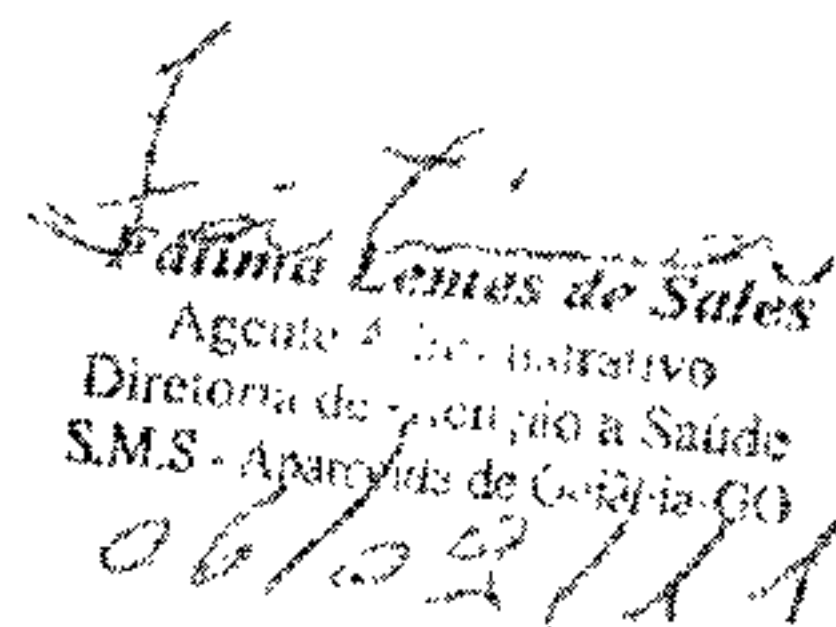 Fátima Lemes de Sales
Agente Administrativo
Diretoria de Atenção a Saúde
S.M.S - Aparecida de Goiânia-GO